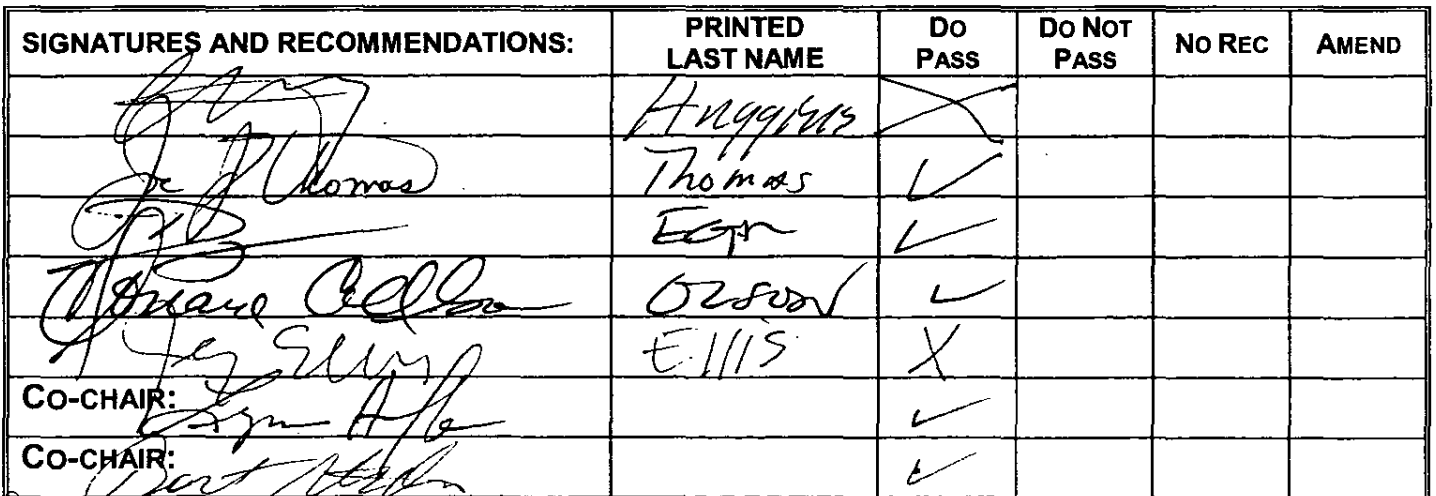 SIGNATURES AND RECOMMENDATIONS: PRINTED LAST NAME DO PASS DO NOT PASS NO REC AMEND
Huggins X
Joe J Thomas Thomas ✓
Egan ✓
Olson ✓
Ellis X
CO-CHAIR: ✓
CO-CHAIR: Bert ✓